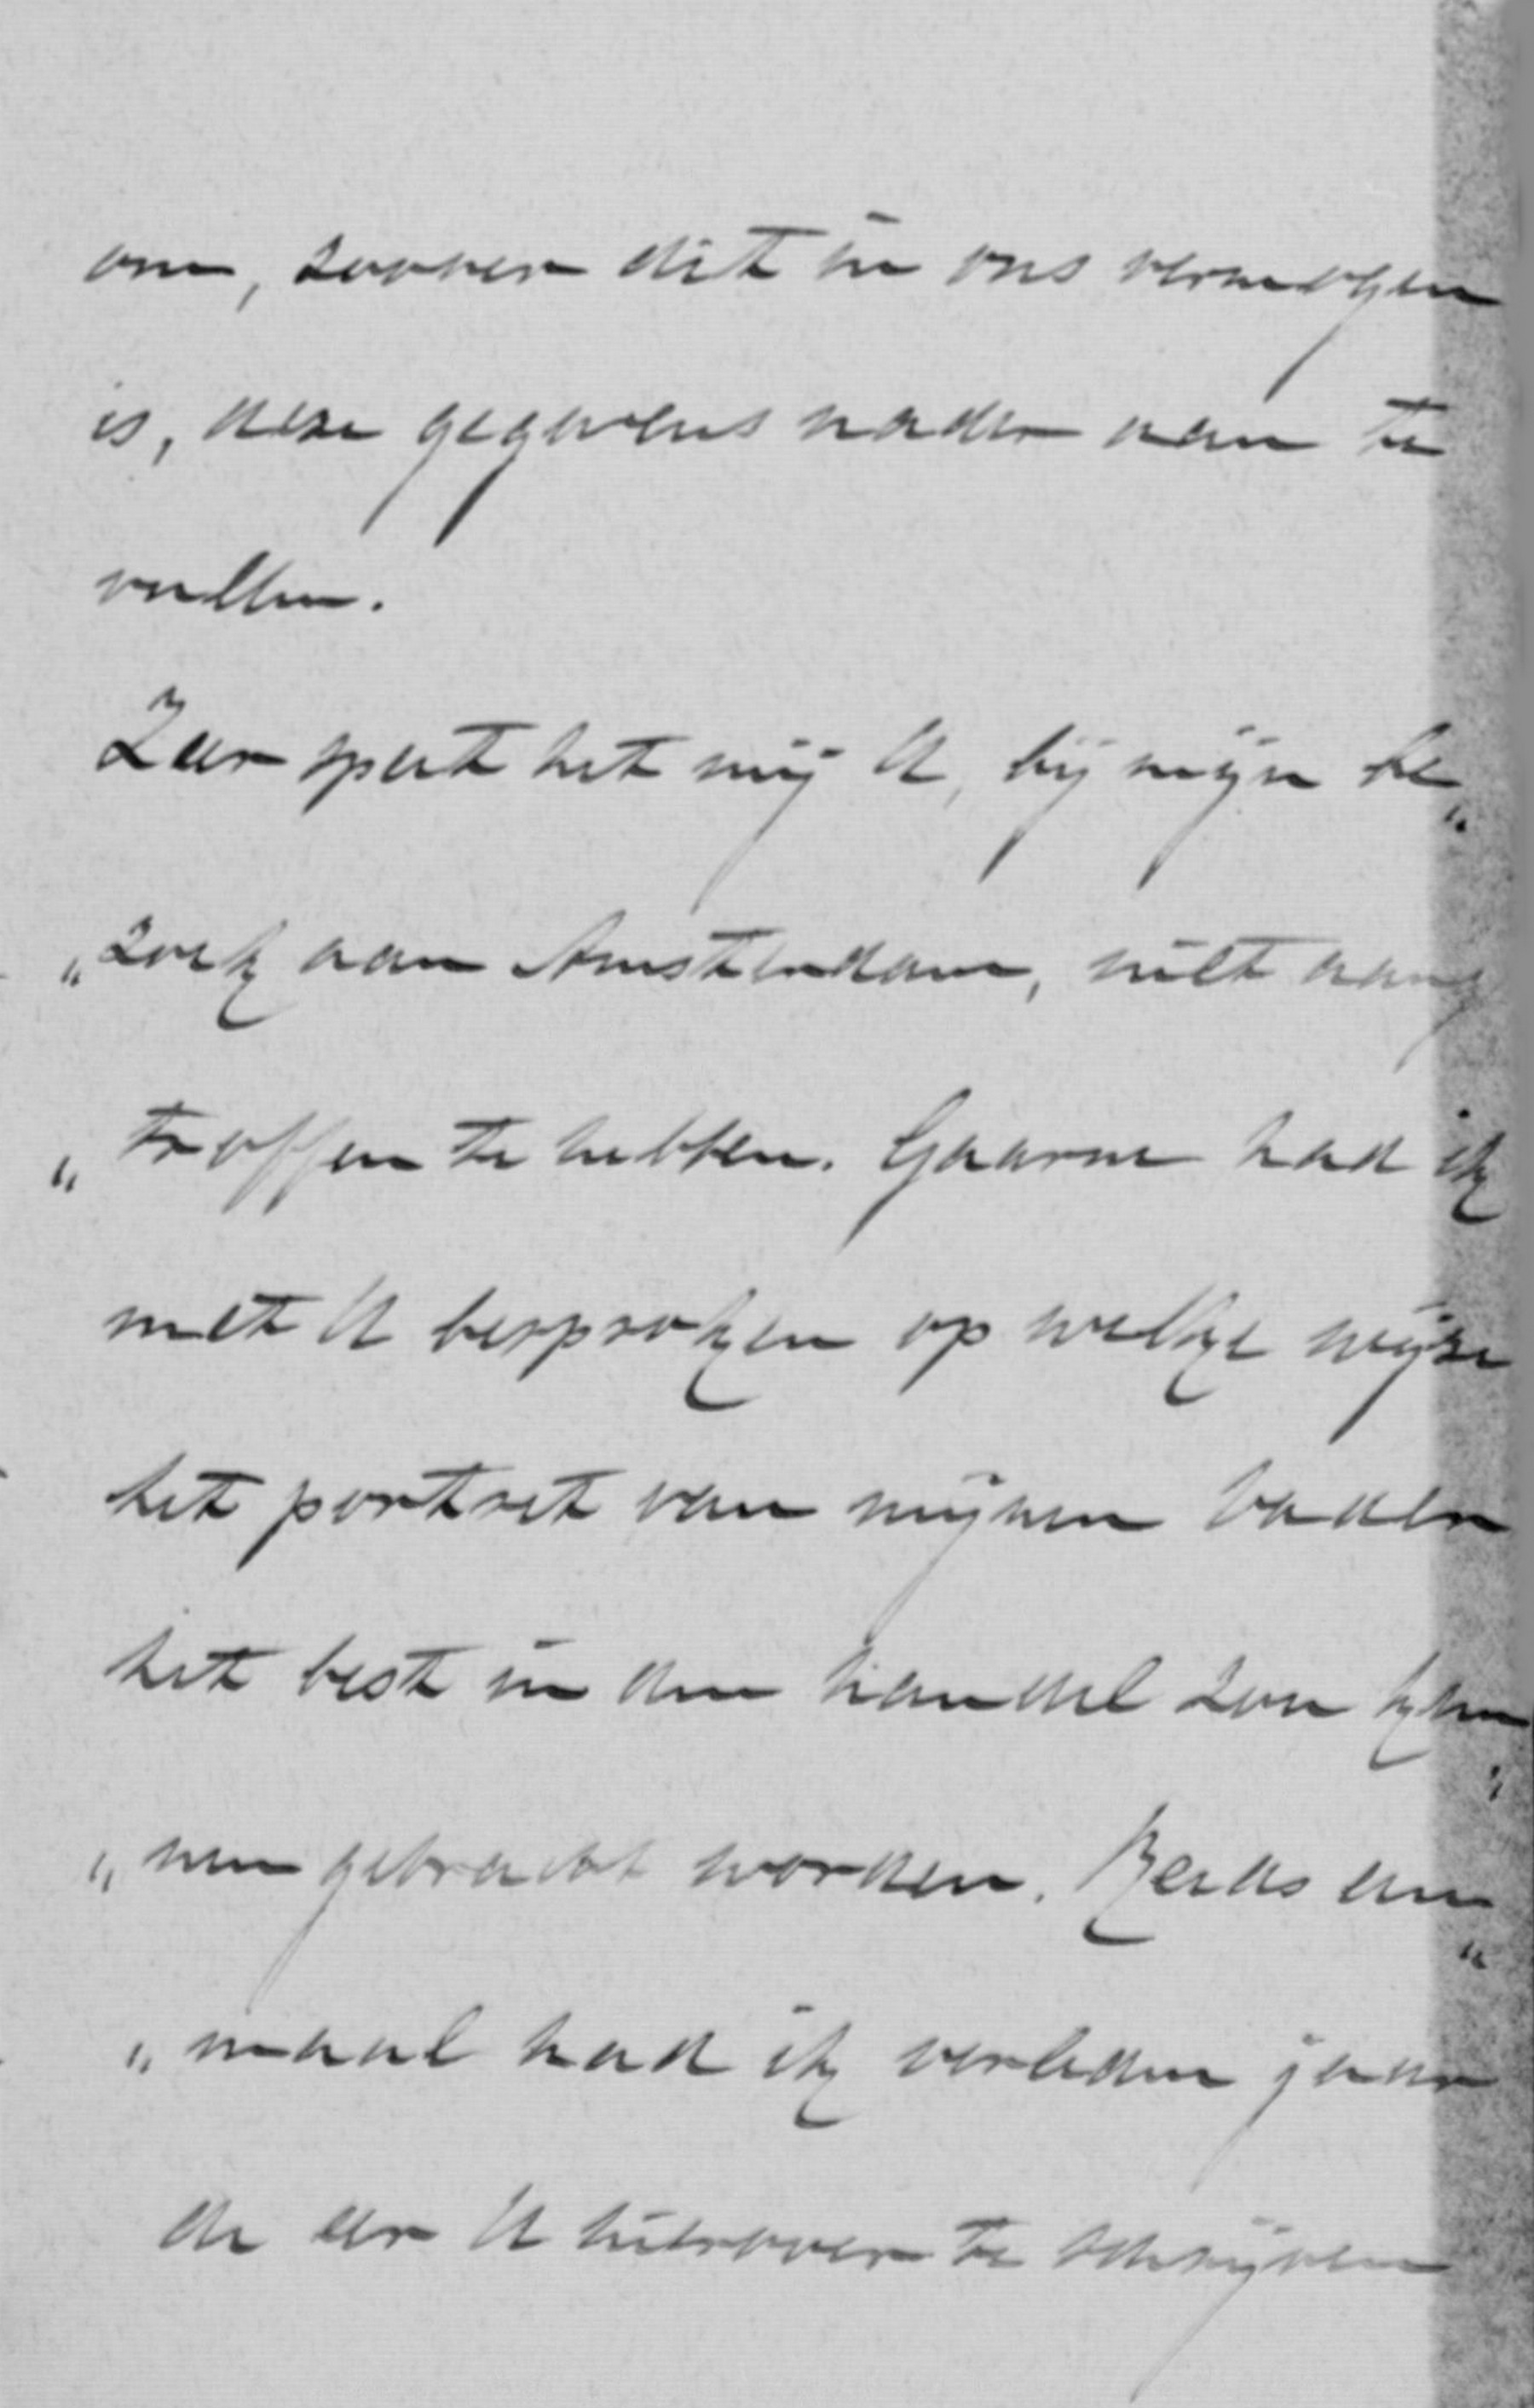 om, zoover dit in ons vermogen
is, deze gegevens nader aan te
vullen.
Zeer spijt het mij U, bij mijn be„
„zoek aan Amsterdam, niet aange
„troffen te hebben. Gaarne had ik
met U besproken op welke wijze
het portret van mijnen Vader
het best in den handel zou kun„
„nen gebracht worden. Reeds een„
„maal had ik verleden jaar
de eer U hierover te schrijven